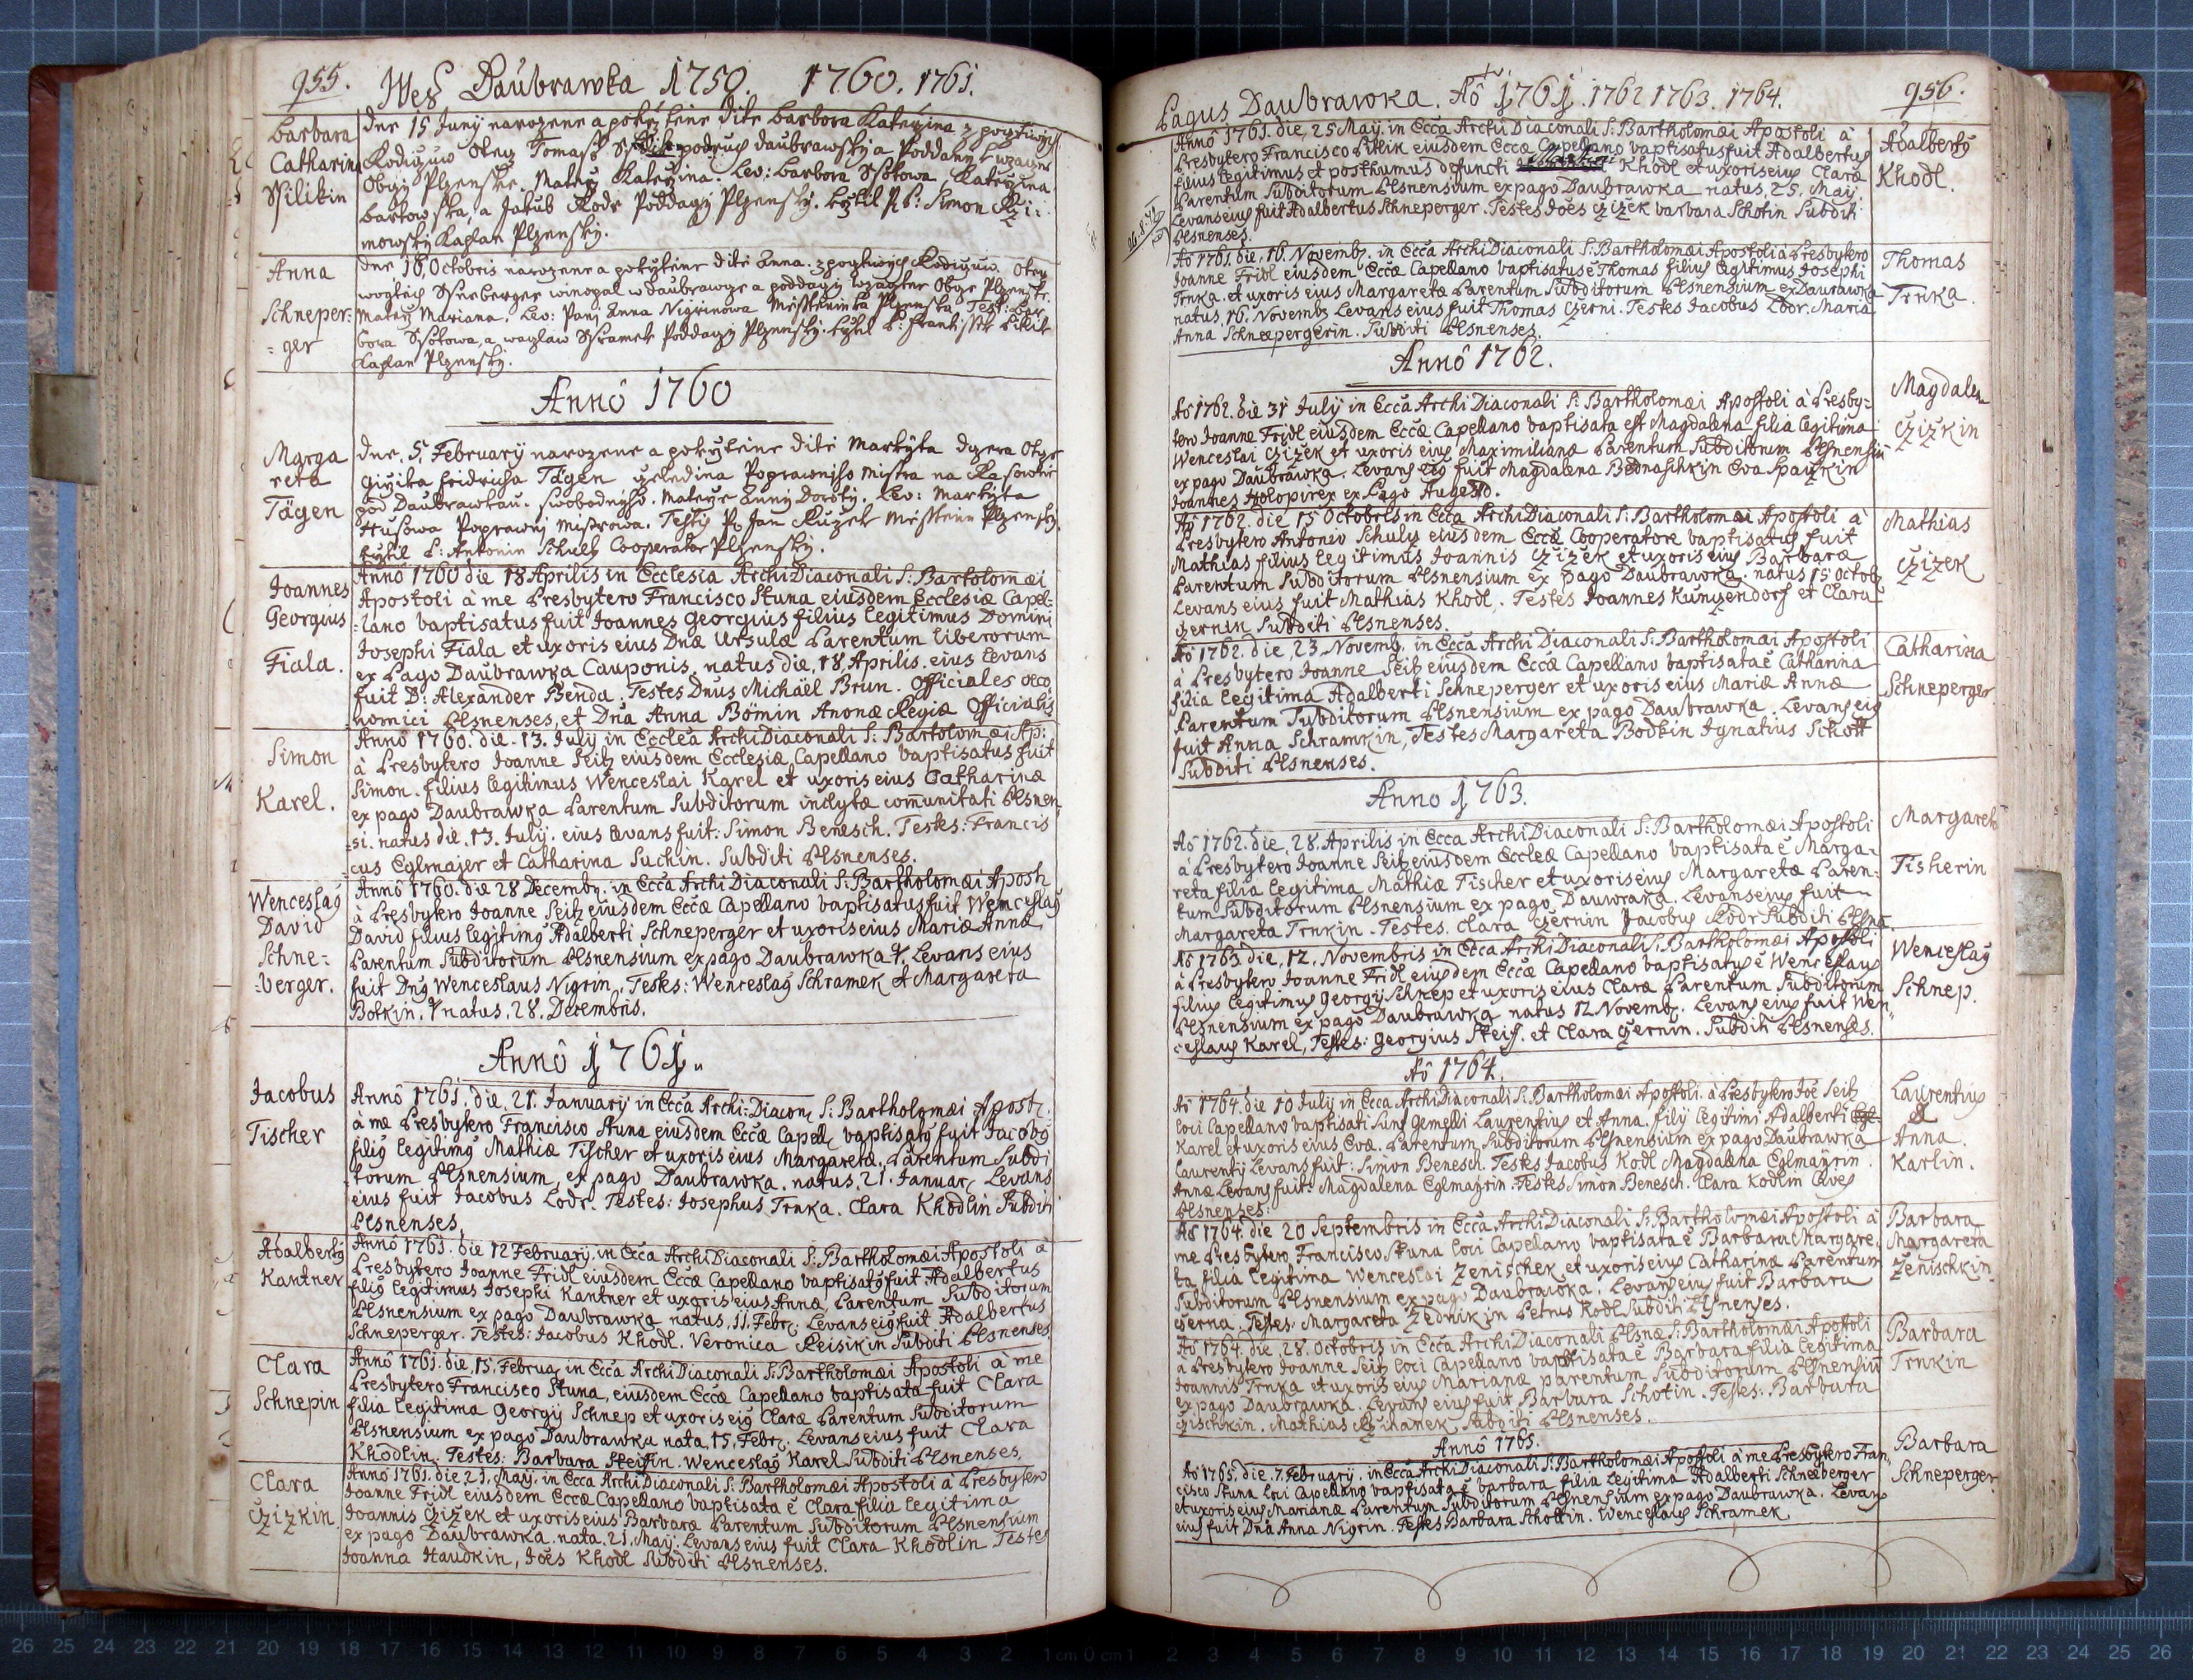 955. Wes Daubrawka 1750. 1760. 1761.
Barbara
Catharina
Spilikin
dne 15 Juny narozene a pokrztiene dite Barbora Katerzina z poczliwych
Rodiczuw Otecz Tomass podruh daubrawsky a Poddany wzaczne
Obczy Plzenske. Materz Katerzina. Lev: Barbora Ssotowa, Katerzina
Bartowska, a Jakub Kodr Poddany Plzensky. krztil P. S: Simon Rzi:
mowsky Kaplan Plzensky.
Anna
Schneper:
=ger
dne 18 Octobris narozene a pokrztiene dite Anna. z poczliwych Rodiczuw. Otecz
Wogtiech Ssneberger winopal w daubrawcze a poddany wzaczne Obcze Plzenske.
Materz Mariana. Lev: Pani Anna Nigrinowa Messtieninka Plzenska Test: Bar
bora Ssotowa, a waczlaw Ssramek Poddany Plzensky. krztil P: Frantissek Pitlik
Kaplan Plzensky.
Annô 1760
Marga
reta
Tägen
dne. 5. February narozene a pokrztiene dite Markyta dczera Otcze
Girzika Fridricha Tägen czeledina Poprawniho Mistra na
pod Daubrawkau. swobodnyho. Materze Anny Doroty. Lev: Markyta
Husowa Poprawny Mistrowa. Testis P. Jan Kuzel Messtienin Plzensky.
krztil P: Antonin Schultz Cooperator Plzensky.
Joannes
Georgius
Fiala.
Annô 1760 die 18 Aprilis in Ecclesia ArchiDiaconali S: Bartolomæi
Apostoli à me Presbytero Francisco Stuna eiusdem Ecclesiæ Capel=
=lano baptisatus fuit Joannes Georgius filius legitimus Domini
Josephi Fiala et uxoris eius Dnæ Ursulæ Parentum liberorum
ex Pago Daubrawka Cauponis, natus die, 18 Aprilis. eius levans
fuit D: Alexander Benda. Testes Dnus Michaël Brun. Officiales oeco
nomici Plsnenses, et Dna Anna Bömin Anonæ Regiæ Officialis
Simon
Karel.
Annô 1760. die. 13. July in Ecclea ArchiDiaconali S: Bartolomæi Ap:
à Presbytero Joanne Seitz eiusdem Ecclesiæ Capellano baptisatus fuit
Simon. filius legitimus Wenceslai Karel et uxoris eius Catharinæ
ex pago Daubrawka Parentum Subditorum inclytæ com̃unitati Plsnen
=si. natus die. 13. July. eius levans fuit: Simon Benesch. Testes: Francis
=cus Eglmajer et Catharina Suchin. Subditi Plsnenses.
Wenceslaꝰ
David
Schne=
=berger.
Annô 1760. die 28 Decembr. in Ecca ArchiDiaconali S: Bartholomæi Apost
à Presbytero Joanne Seitz eiusdem Eccæ Capellano baptisatus fuit Wenceslaꝰ
David filius legitimꝰ Adalberti Schneperger et uxoris eius Mariæ Annæ
Parentum Subditorum Plsnensium ex pago Daubrawka. Levans eius
fuit Dnꝰ Wenceslaus Nigrin. Testes: Wenceslaꝰ Schramek et Margareta
Botkin. natus. 28. Decembris.
Annô 1761.
Jacobus
Tischer
Annô 1761. die. 21. January in Ecca Archi:Diacon S: Bartholomæi Apost.
à me Presbytero Francisco Stuna eiusdem Eccæ Capell baptisatꝰ fuit Jacobꝰ
filiꝰ legitimꝰ Mathiæ Tischer et uxoris eius Margaretæ. Parentum Subdi
torum Plsnensium, ex pago Daubrawka. natus. 21. Januar, Levans
eius fuit Jacobus Lodr. Testes: Josephus Trnka. Clara Khodlin Subditi
Plsnenses.
Adalbertꝰ
Kantner
Annô 1761. die 12 February. in Ecca ArchiDiaconali S: Bartholomæi Apostoli à
Presbytero Joanne Fridl eiusdem Eccæ Capellano baptisatꝰ fuit Adalbertus
filiꝰ legitimus Josephi Kantner et uxoris eius Annæ, Parentum Subditorum
Plsnensium ex pago Daubrawka natus, 11. Febr. Levans eiꝰ fuit Adalbertus
Schneperger. Testes: Jacobus Khodl. Veronica Reisikin Subditi Plsnenses.
Clara
Schnepin
Annô 1761. die, 15. Februa, in Ecca ArchiDiaconali S: Bartholomæi Apostoli à me
Presbytero Francisco Stuna, eiusdem Eccæ Capellano baptisata fuit Clara
filia legitima Georgij Schnep et uxoris eiꝰ Claræ Parentum Subditorum
Plsnensium ex pago Daubrawka nata, 15. Febr. Levans eius fuit Clara
Khodlin. Testes: Barbara Steissin. Wenceslaꝰ Karel Subditi Plsnenses.
Clara
Czizkin
Annô 1761. die 21. May. in Ecca ArchiDiaconali S: Bartholomæi Apostoli à Presbytero
Joanne Fridl eiusdem Eccæ Capellano baptisata ẽ Clara filia legitima
Joannis Czizek et uxoris eius Barbaræ Parentum Subditorum Plsnensium
ex pago Daubrawka. nata. 21. May. Levans eius fuit Clara Khodlin Testes
Joanna Haudkin, Jões Khodl Subditi Plsnenses.
Pagus Daubrawka. Aô 1761. 1762 1763. 1764. 956.
Annô 1761. die, 25 May. in Ecca Archi Diaconali S: Bartholomæi Apostoli à
Presbytero Francisco Pitlik eiusdem Eccæ Capellano baptisatus fuit Adalbertus
filius legitimus et posthumus defuncti Martini Khodl et uxoris eius Claræ
Parentum Subditorum Plsnensium ex pago Daubrawka natus, 25. May.
Levans eius fuit Adalbertus Schneperger. Testes Jões Czizek Barbara Schotin Subditi
Plsnenses.
Adalbertꝰ
Khodl.
Aô 1761. die. 16. Novembr. in Ecca ArchiDiaconali S: Bartholomæi Apostoli à Presbytero
Joanne Fridl eiusdem Eccæ Capellano baptisatus ẽ Thomas filius legitimus Josephi
Trnka. et uxoris eius Margaretæ Parentum Subditorum Plsnensium ex Daubrawka
natus, 16. Novembr Levans eius fuit Thomas Czerni. Testes Jacobus Lodr. Maria
Anna Schneepergerin. Subditi Plsnenses.
Thomas
Trnka.
Annô 1762.
Aô 1762. die 31 July in Ecca ArchiDiaconali S: Bartholomæi Apostoli à Presby=
tero Joanne Fridl eiusdem Eccæ Capellano baptisata est Magdalena filia legitima
Wenceslai Czizek et uxoris eius Maximilianæ Parentum Subditorum Plsnensiũ
ex pago Daubrawka. Levans eiꝰ fuit Magdalena Bednaschkin Eva Spaczkin
Joannes Holopirex ex Pago Augezd.
Magdalen
Czizkin
Aô 1762. die 15 Octobris in Ecca ArchiDiaconali S: Bartholomæi Apostoli à
Presbytero Antonio Schulz eiusdem Eccæ Cooperatore baptisatus fuit
Mathias filius legitimus Joannis Czizek et uxoris eius Barbaræ
Parentum Subditorum Plsnensium ex pago Daubrawka. natus 15 Octob
Levans eius fuit Mathias Khodl. Testes Joannes Kunzendorf et Clara
Czernin Subditi Plsnenses.
Mathias
Czizek
Aô 1762. die, 23 Novemb, in Ecca ArchiDiaconali S: Bartholomæi Apostoli
à Presbytero Joanne Seitz eiusdem Eccæ Capellano baptisata ẽ Catharina
filia legitima Adalberti Schneperger et uxoris eius Mariæ Annæ
Parentum Subditorum Plsnensium ex pago Daubrawka. Levans eiꝰ
fuit Anna Schramkin, Testes Margareta Bodkin Ignatius Schott
Subditi Plsnenses.
Catharina
Schneperger.
Anno 1763.
Aô 1762. die, 28. Aprilis in Ecca ArchiDiaconali S: Bartholomæi Apostoli
à Presbytero Joanne Seitz eiusdem Eccleæ Capellano baptisata ẽ Marga=
reta filia legitima Mathiæ Tischer et uxoris eius Margaretæ Paren=
tum Subditorum Plsnensium ex pago, Dauwraka. Levans eius fuit
Margareta Trnkin. Testes. Clara Czernin Jacobus Kodr Subditi Plsne.
Margaret
Tisherin
Aô 1763. die, 12. Novembris in Ecca ArchiDiaconali S: Bartholomæi Apostoli
à Presbytero Joanne Fridl eiusdem Eccæ Capellano baptisatus ẽ Wenceslaus
filius legitimus Georgij Schnep et uxoris eius Claræ Parentum Subditorum
Plsnensium ex pago Daubrawka natus 12 Novemb. Levans eius fuit Wen
=ceslaus Karel, Testes: Georgius Steiss. et Clara Czernin. Subditi Plsnenses.
Wenceslaꝰ
Schnep.
Aô 1764.
Aô 1764. die 10 July in Ecca ArchiDiaconali S: Bartholomæi Apostoli. à Presbytero Joẽ Seitz
loci Capellano baptisati sunt Gemelli Laurentius et Anna. filij legitimi Adalberti
Karel et uxoris eius Evæ. Parentum Subditorum Plsnensium ex pago Daubrawka
Laurentij Levans fuit: Simon Benesch. Testes Jacobus Kodl Magdalena Eglmayrin.
Annæ Levans fuit: Magdalena Eglmayrin. Testes Simon Benesch. Clara Kodlin Cives
Plsnenses.
Laurentius
&
Anna.
Karlin.
Aô 1764. die 20 Septembris in Ecca ArchiDiaconali S: Bartholomæi Apostoli à
me Presbytero, Francisco Stuna loci Capellano baptisata ẽ Barbara Margare
ta filia legitima Wenceslai Zenischek et uxoris eius Catharinæ Parentum
Subditorum Plsnensium ex pago Daubrawka. Levans eius fuit Barbara
Czerna. Testes: Margareta Zednikin Petrus Kodl Subditi Plsnenses.
Barbara
Margareta
Zenischkin
Aô 1764. die, 28. Octobris in Ecca ArchiDiaconali Plsnæ S: Bartholomæi Apostoli
à Presbytero Joanne Seitz loci Capellano baptisata ẽ Barbara filia legitima
Joannis Trnka et uxoris eius Marianæ parentum Subditorum Plsnensiũ
ex pago Daubrawka. Levans eius fuit Barbara Schotin. Testes: Barbara
Czischkin. Mathias Subditi Plsnenses.
Barbara
Trnkin
Annô 1765.
Aô 1765. die, 7. February. in Ecca ArchiDiaconali S: Bartholomæi Apostoli à me Presbytero Fran
cisco Stuna loci Capellano baptisata ẽ barbara filia legitima Adalberti Schneeberger
et uxoris eius Marianæ Parentum Subditorum Plsnensium ex pago Daubrawka. Levans
eius fuit Dna Anna Nigrin. Testes Barbara Schottin. Wenceslaus Schramek.
Barbara
Schneperger
26 25 24 23 22 21 20 19 18 17 16 15 14 13 12 11 10 9 8 7 6 5 4 3 2 1 cm 0 cm 1 2 3 4 5 6 7 8 9 10 11 12 13 14 15 16 17 18 19 20 21 22 23 24 25 26